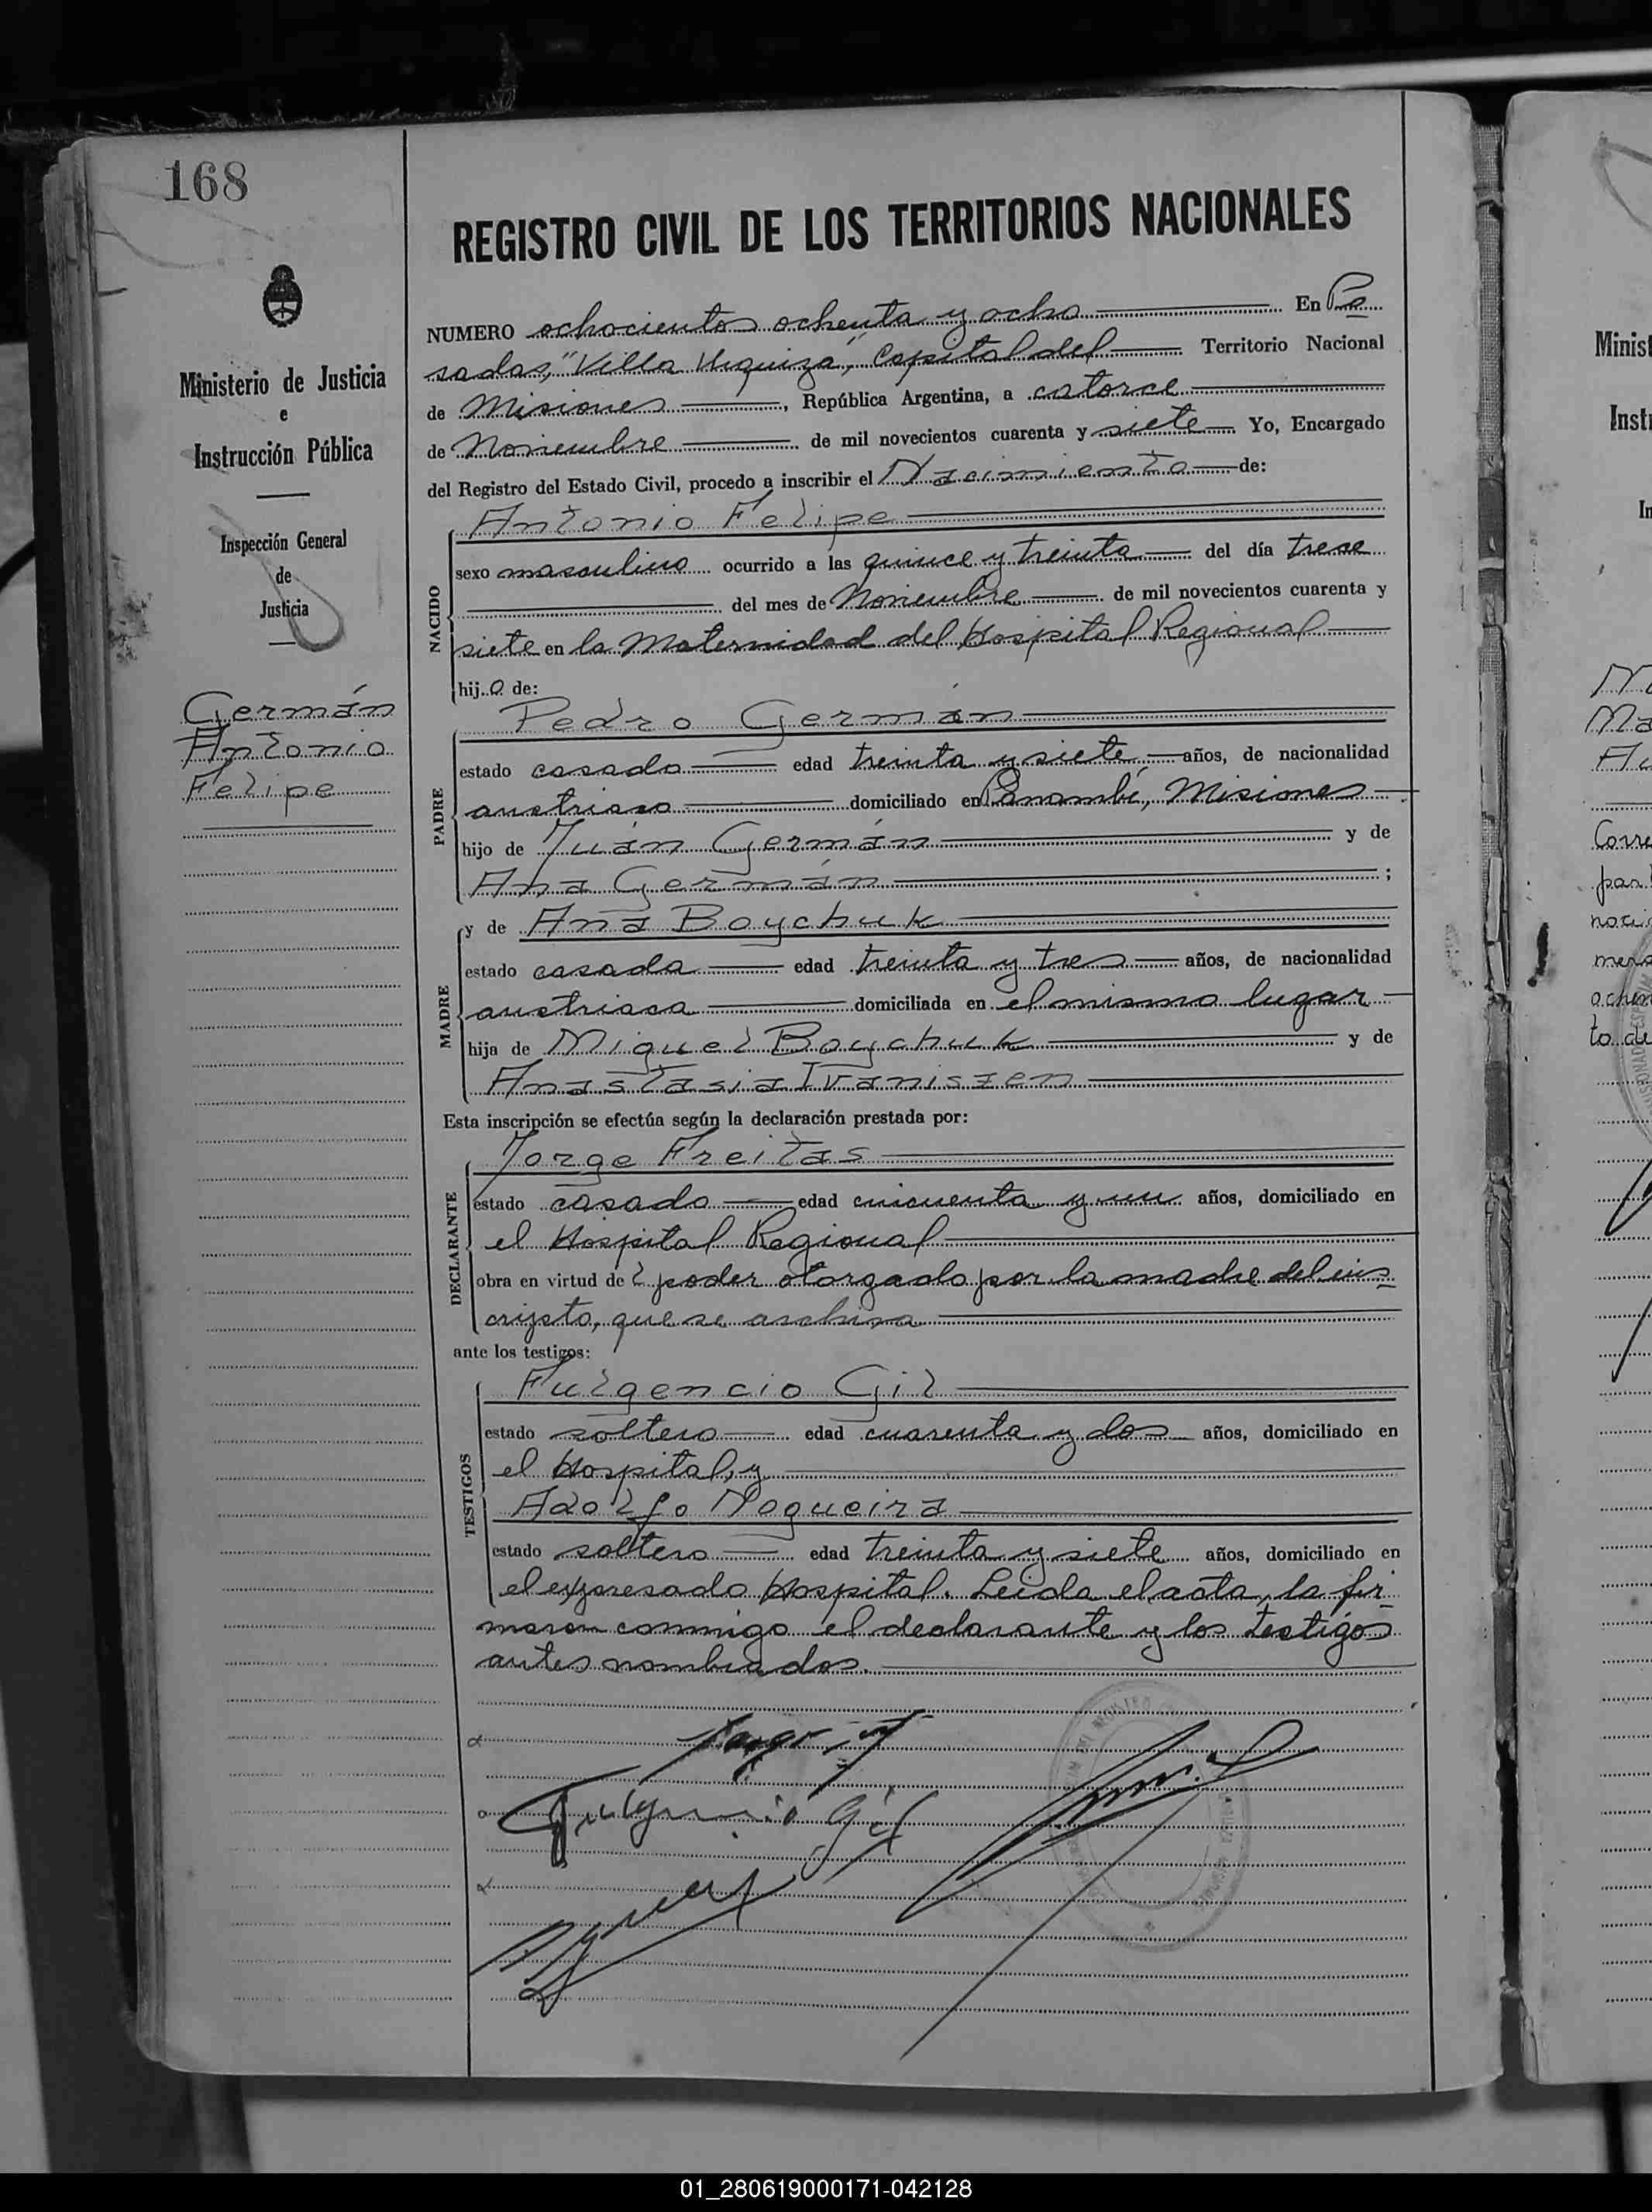 168
REGISTRO CIVIL DE LOS TERRITORIOS NACIONALES
Ministerio de Justicia
e
Instrucción Pública
Inspección General
de
Justicia
Germán
Antonio
Felipe
NUMERO ochocientos ochenta y ocho En Po
sadas, "Villa Urquiza", Capital del Territorio Nacional
de Misiones, República Argentina, a catorce
de Noviembre de mil novecientos cuarenta y siete Yo, Encargado
del Registro del Estado Civil, procedo a inscribir el Nacimiento de:
NACIDO
Antonio Felipe
sexo masculino ocurrido a las quince y treinta del día trece
del mes de Noviembre de mil novecientos cuarenta y
siete en la Maternidad del Hospital Regional
hijo de:
PADRE
Pedro Germán
estado casado edad treinta y siete años, de nacionalidad
austriaco domiciliado en Panambí, Misiones
hijo de Juán Germán y de
Ana Germán;
MADRE
y de Ana Boychuk
estado casada edad treinta y tres años, de nacionalidad
austriaca domiciliada en el mismo lugar
hija de Miguel Boychuk y de
Anastasia Ivaniszen
Esta inscripción se efectúa según la declaración prestada por:
DECLARANTE
Jorge Freitas
estado casado edad cincuenta y un años, domiciliado en
el Hospital Regional
obra en virtud de poder otorgado por la madre del ins
cripto, que se archiva
ante los testigos:
TESTIGOS
Fulgencio Gil
estado soltero edad cuarenta y dos años, domiciliado en
el Hospital, y
Adolfo Nogueira
estado soltero edad treinta y siete años, domiciliado en
el expresado Hospital. Leida el acta, la fir
maron conmigo el declarante y los testigos
antes nombrados.
Fulgencio Gil
Minist
Instr
In
Corre
par
naci
to de
01_280619000171-042128